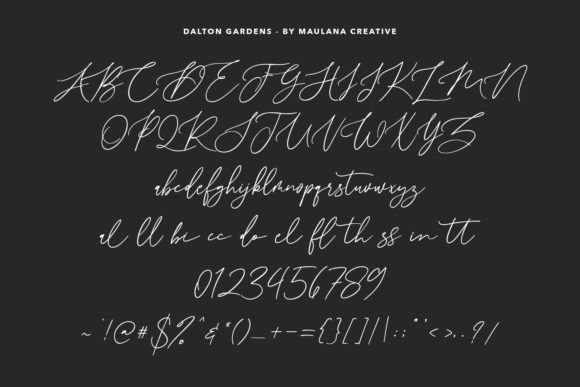 DALTON GARDENS - BY MAULANA CREATIVE
ABCDEFGHIJKLMN
OPQRSTUVWXYZ
abcdefghijklmnopqrstuvwxyz
al ll bi cc do el fl th ss in tt
0123456789
~`!@#$%^&*()_+-={}[]|\:;"'<>,.?/